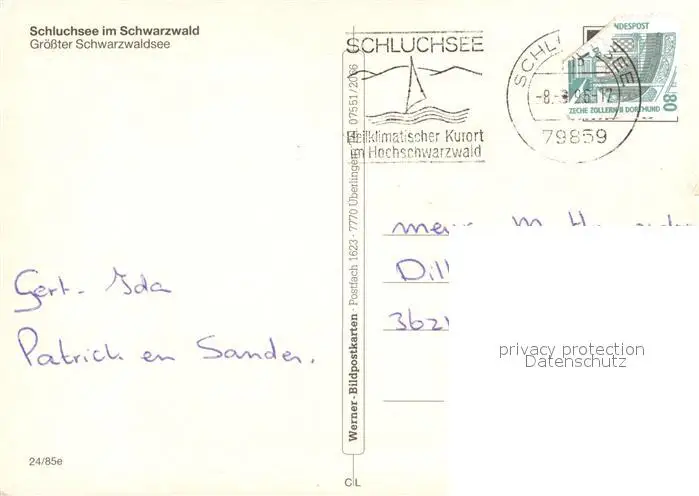 Schluchsee im Schwarzwald
Größter Schwarzwaldsee
SCHLUCHSEE
Heilklimatischer Kurort
im Hochschwarzwald
79859
DESPOST
80
ZECHE ZOLLERN II DORTMUND
Werner-Bildpostkarten · Postfach 1623 · 7770 Überlingen
07551/2066
Gert - Ida
Patrick en Sander.
Dill
362
privacy protection
Datenschutz
24/85e